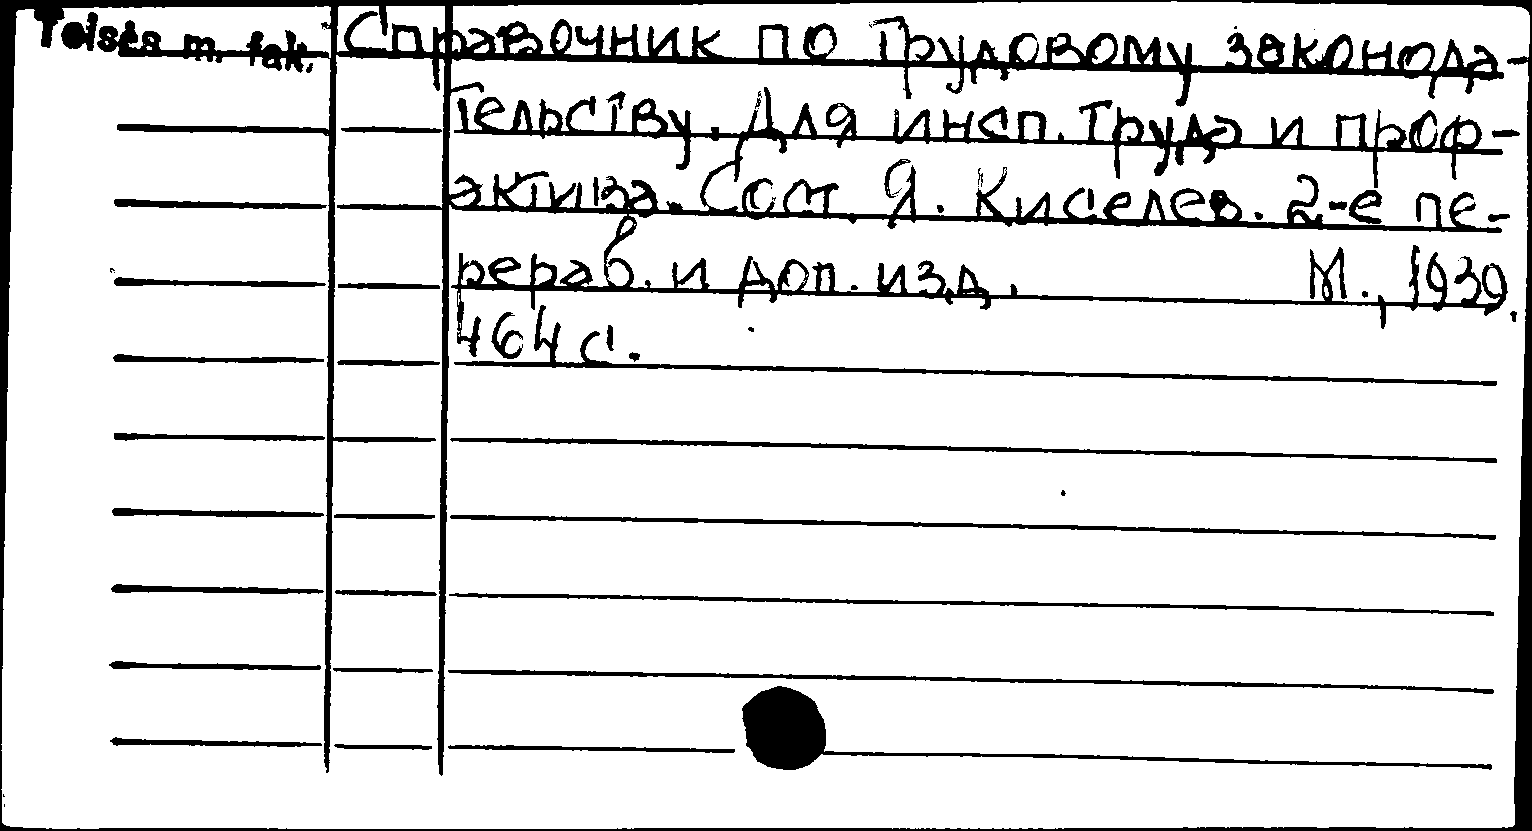 Teisės m. fak.
Справочник по трудовому законода-
тельству. Для инсп. труда и проф-
актива. Сост. Я. Киселев. 2-е пе-
рераб. и доп. изд. М., 1939.
464 с.